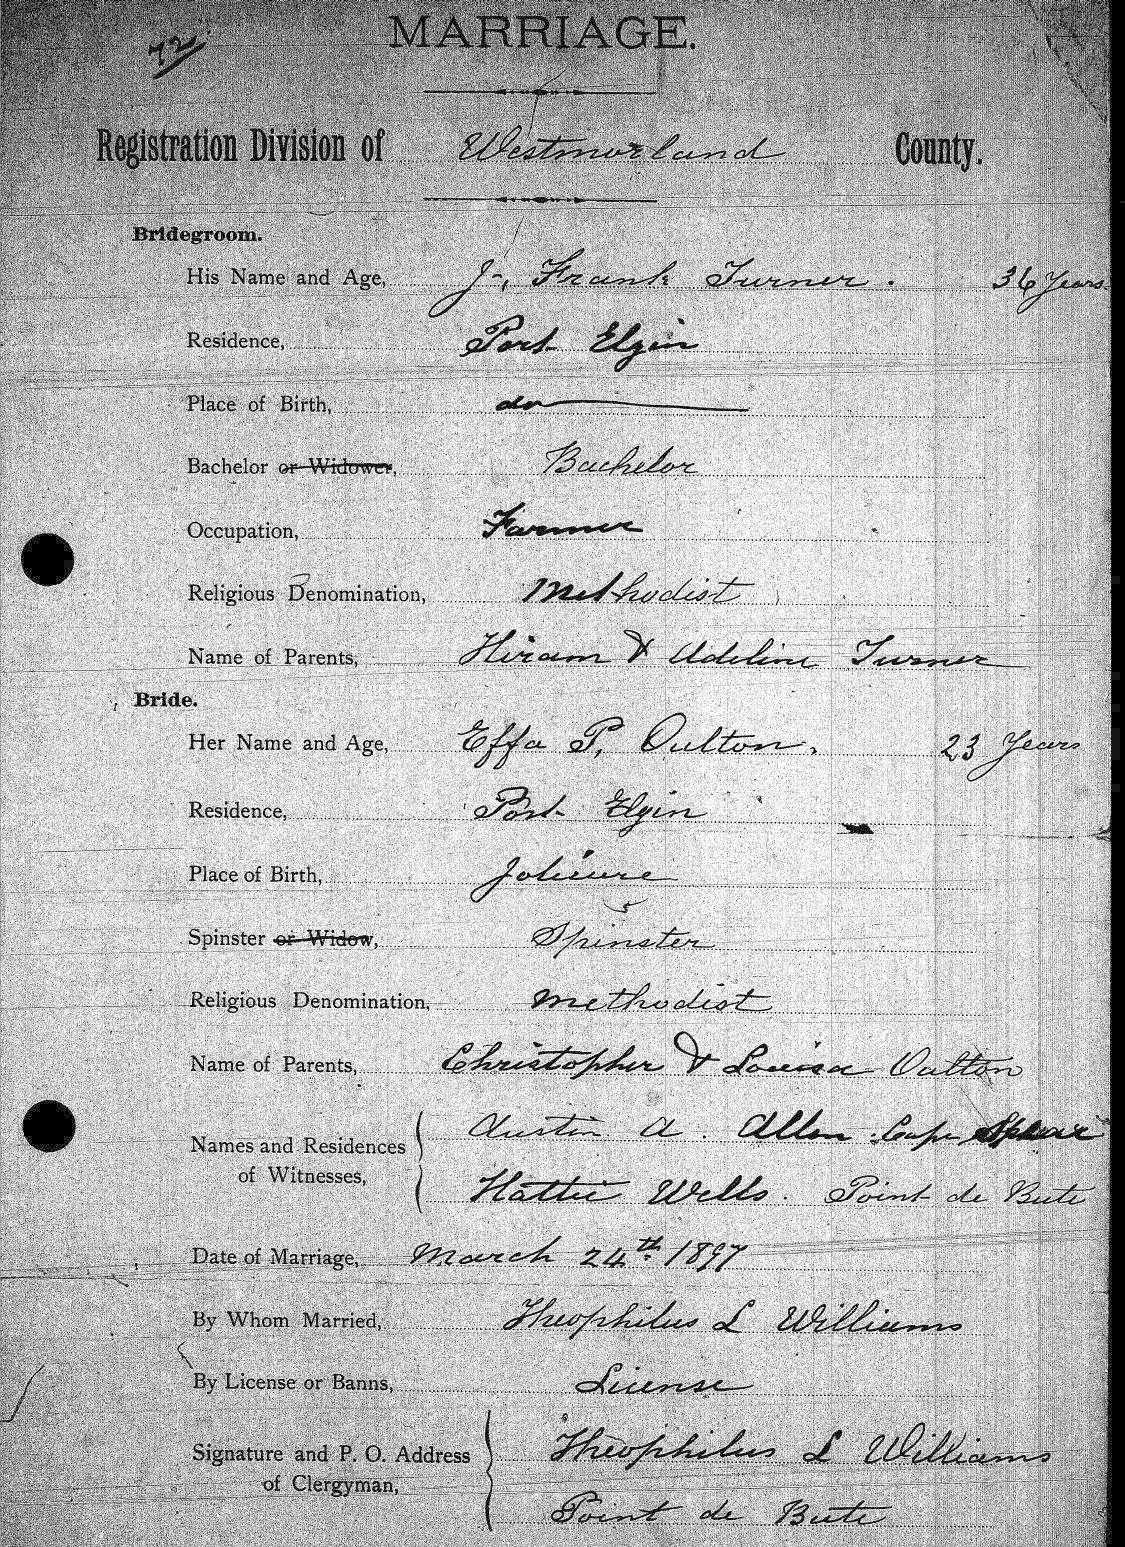 72
MARRIAGE.
Registration Division of Westmorland County.
Bridegroom.
His Name and Age, J. Frank Turner. 36 Years
Residence, Port Elgin
Place of Birth, do
Bachelor or Widower, Bachelor
Occupation, Farmer
Religious Denomination, Methodist
Name of Parents, Hiram & Adeline Turner
Bride.
Her Name and Age, Effa P. Oulton. 23 Years
Residence, Port Elgin
Place of Birth, Jolieure
Spinster or Widow, Spinster
Religious Denomination, Methodist
Name of Parents, Christopher & Louisa Oulton
Names and Residences
of Witnesses,
Austin A. Allen Cape Spear
Hattie Wells. Point de Bute
Date of Marriage, March 24th 1897
By Whom Married, Theophilus L Williams
By License or Banns, License
Signature and P. O. Address
of Clergyman,
Theophilus L Williams
Point de Bute